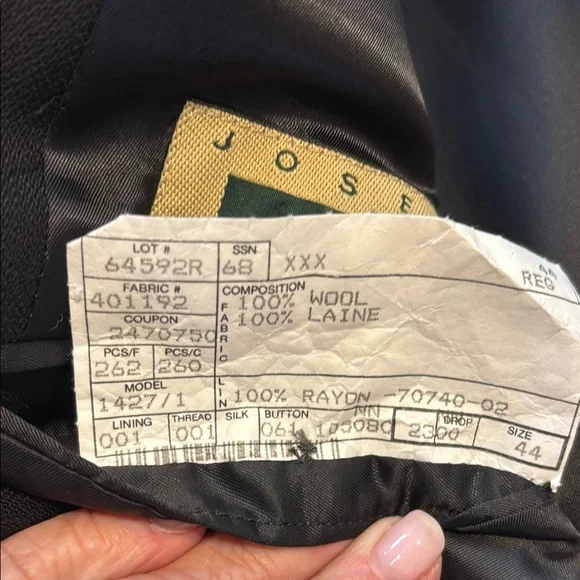 JOSE
LOT # SSN
64592R 68 XXX 44
REG
FABRIC # COMPOSITION
401192 FABRIC 100% WOOL
COUPON 100% LAINE
2470750
PCS/F PCS/C
262 260
MODEL LIN
1427/1 100% RAYON -70740-02
LINING THREAD SILK BUTTON NN DROP SIZE
001 001 061 103080 2300 44